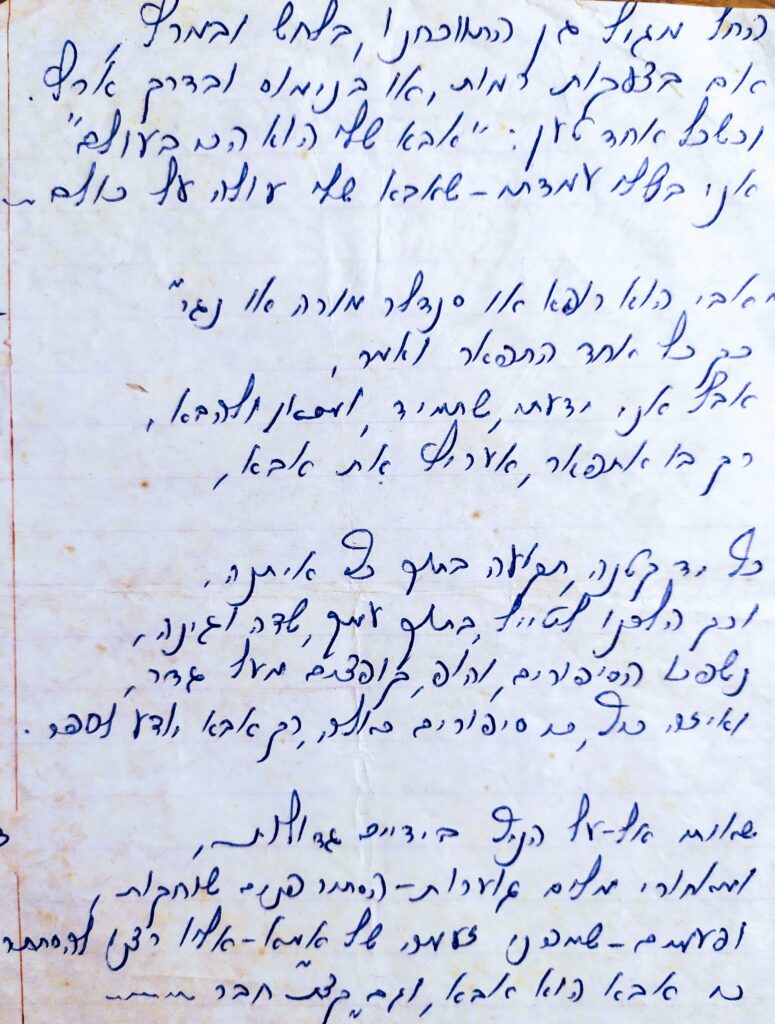 החל מגיל גן התווכחנו, בלחש ובמרץ,
אם בצעקות רמות, או בנימוס ובדרך ארץ.
וכשכל אחד טען: "אבא שלי הוא הכי בעולם"
אני בשלי עמדתי – שאבא שלי עולה על כולם...
אבי הוא רופא או סנדלר מורה או נגר"
כך כל אחד התפאר ואמר,
אבל אני ידעתי, שתמיד, ומכאן ולהבא,
רק בו אתפאר, אעריץ את אבא,
כל יד קטנה, תקועה בתוך כף איתנה,
וכך הלכנו לטייל, בתוך עמק, שדה וגינה,
נשפכו הסיפורים, והופ, קופצים מעל גדר,
ואיזה כיף, כי סיפורים כאלה, רק אבא יודע לספר.
אל-על הניף בידיים גדולות,
ומאחורי מילים גוערות – הסתיר פנים שוחקות,
ופעמים – שמפני זעמה של אמא – אליו רצנו להסתתר
כי אבא הוא אבא, וגם "קצת" חבר ......